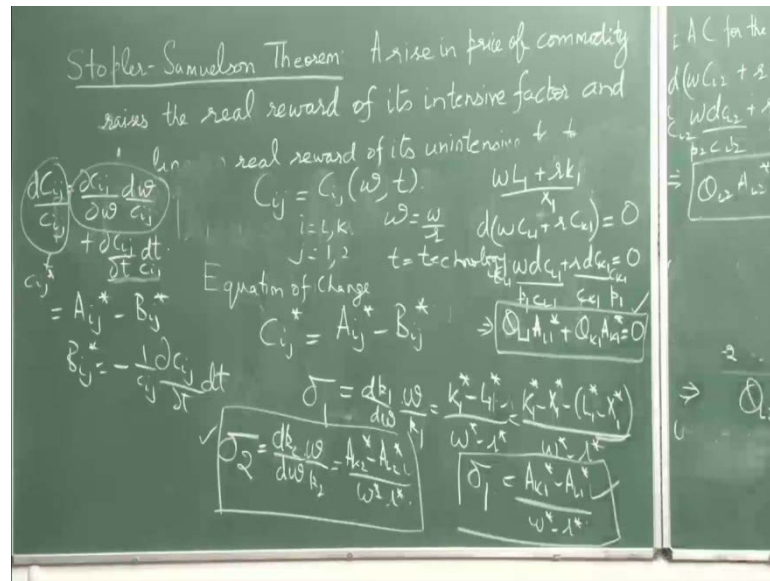 Stopler-Samuelson Theorem: A rise in price of commodity
raises the real reward of its intensive factor and
real reward of its unintensive
dCij/Cij = ∂Cij/∂ω dω/Cij
+ ∂Cij/∂t dt/Cij
Cij*
= Aij* - Bij*
Bij* = - 1/Cij ∂Cij/∂t dt
Cij = Cij (ω, t).
i = L, K
j = 1, 2
ω = w/r
t = technology
Equation of Change
Cij* = Aij* - Bij*
wL1 + rK1
X1
d(wCL1 + rCK1) = 0
⇒ QL1 AL1* + QK1 AK1* = 0
σ1 = dk1/dω ω/k1 = K1* - L1*/ω* - r* = K1* - X1* - (L1* - X1*)/w* - r*
σ2 = dk2/dω ω/k2 = AK2* - AL2*/w* - r*
σ1 = AK1* - AL1*/w* - r*
AC for the
d(wCL2 + r
⇒ QL2 AL2*
⇒